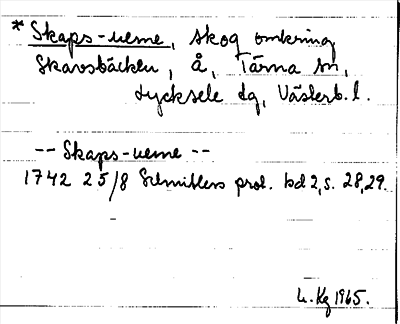 * Skaps-ueme, skog omkring
Skarosbäcken, å, Tärna sn,
Lycksele dg, Västerb. l.
-- Skaps-ueme --
1742 25/8 Schnitlers prot. bd 2, s. 28, 29.
L. Kg 1965.